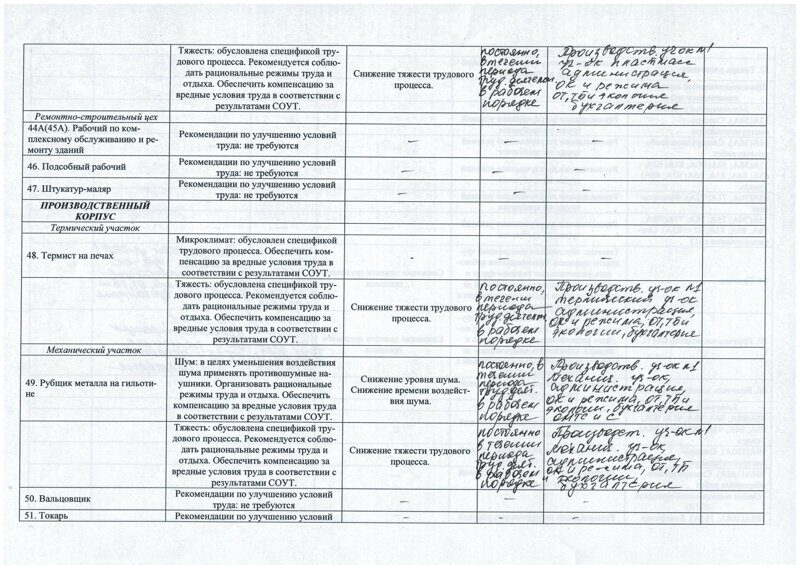 Тяжесть: обусловлена спецификой тру-
дового процесса. Рекомендуется соблю-
дать рациональные режимы труда и
отдыха. Обеспечить компенсацию за
вредные условия труда в соответствии с
результатами СОУТ.
Снижение тяжести трудового
процесса.
постоянно,
в течении
периода
труд. деятельн.
в рабочем
порядке
Производств. уч-ок №1
уч-ок пластмасс
администрация,
ОК и режима
ОТ, ТБ и экологии
бухгалтерия
Ремонтно-строительный цех
44А(45А). Рабочий по ком-
плексному обслуживанию и ре-
монту зданий
Рекомендации по улучшению условий
труда: не требуются
– – –
46. Подсобный рабочий
Рекомендации по улучшению условий
труда: не требуются
– – –
47. Штукатур-маляр
Рекомендации по улучшению условий
труда: не требуются
– – –
ПРОИЗВОДСТВЕННЫЙ
КОРПУС
Термический участок
48. Термист на печах
Микроклимат: обусловлен спецификой
трудового процесса. Обеспечить ком-
пенсацию за вредные условия труда в
соответствии с результатами СОУТ.
– – –
Тяжесть: обусловлена спецификой тру-
дового процесса. Рекомендуется соблю-
дать рациональные режимы труда и
отдыха. Обеспечить компенсацию за
вредные условия труда в соответствии с
результатами СОУТ.
Снижение тяжести трудового
процесса.
постоянно,
в течении
периода
труд. деятельн.
в рабочем
порядке
Производств. уч-ок №1
термический уч-ок
администрация,
ОК и режима, ОТ, ТБ и
экологии, бухгалтерия
Механический участок
49. Рубщик металла на гильоти-
не
Шум: в целях уменьшения воздействия
шума применять противошумные на-
ушники. Организовать рациональные
режимы труда и отдыха. Обеспечить
компенсацию за вредные условия труда
в соответствии с результатами СОУТ.
Снижение уровня шума.
Снижение времени воздейст-
вия шума.
постоянно, в
течении
периода
труд. деят.
в рабочем
порядке
Производств. уч-ок №1
механич. уч-ок,
администрация,
ОК и режима, ОТ, ТБ и
экологии, бухгалтерия
ОМТС и С
Тяжесть: обусловлена спецификой тру-
дового процесса. Рекомендуется соблю-
дать рациональные режимы труда и
отдыха. Обеспечить компенсацию за
вредные условия труда в соответствии с
результатами СОУТ.
Снижение тяжести трудового
процесса.
постоянно
в течении
периода
труд. деят.
в рабочем
порядке
Производст. уч-ок №1
механич. уч-ок
администрация,
ОК и режима, ОТ, ТБ
и экологии,
бухгалтерия
50. Вальцовщик
Рекомендации по улучшению условий
труда: не требуются
– – –
51. Токарь
Рекомендации по улучшению условий
– – –